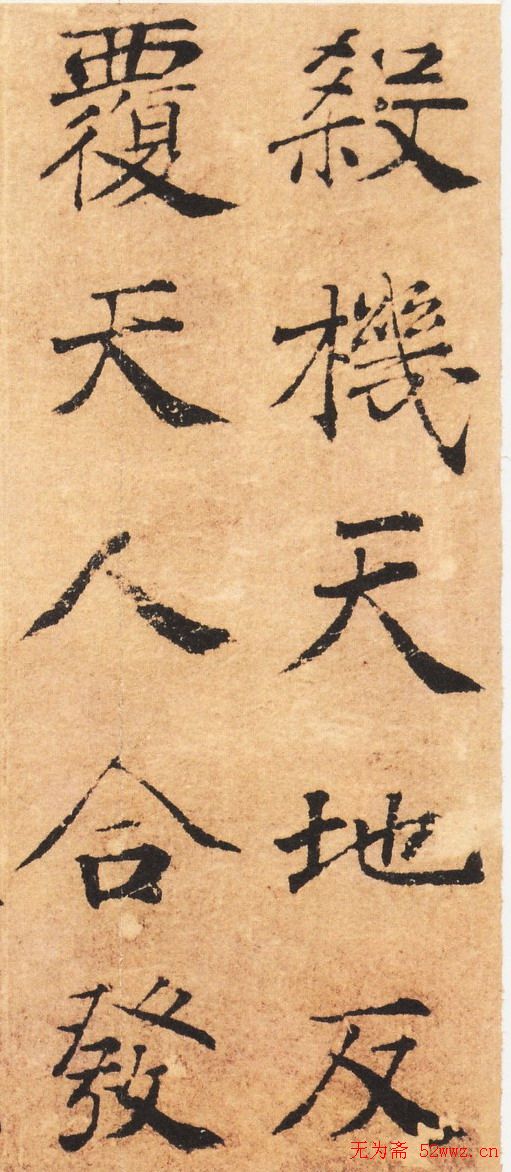 殺機天地反
覆天人合發
无为斋 52wwz.cn